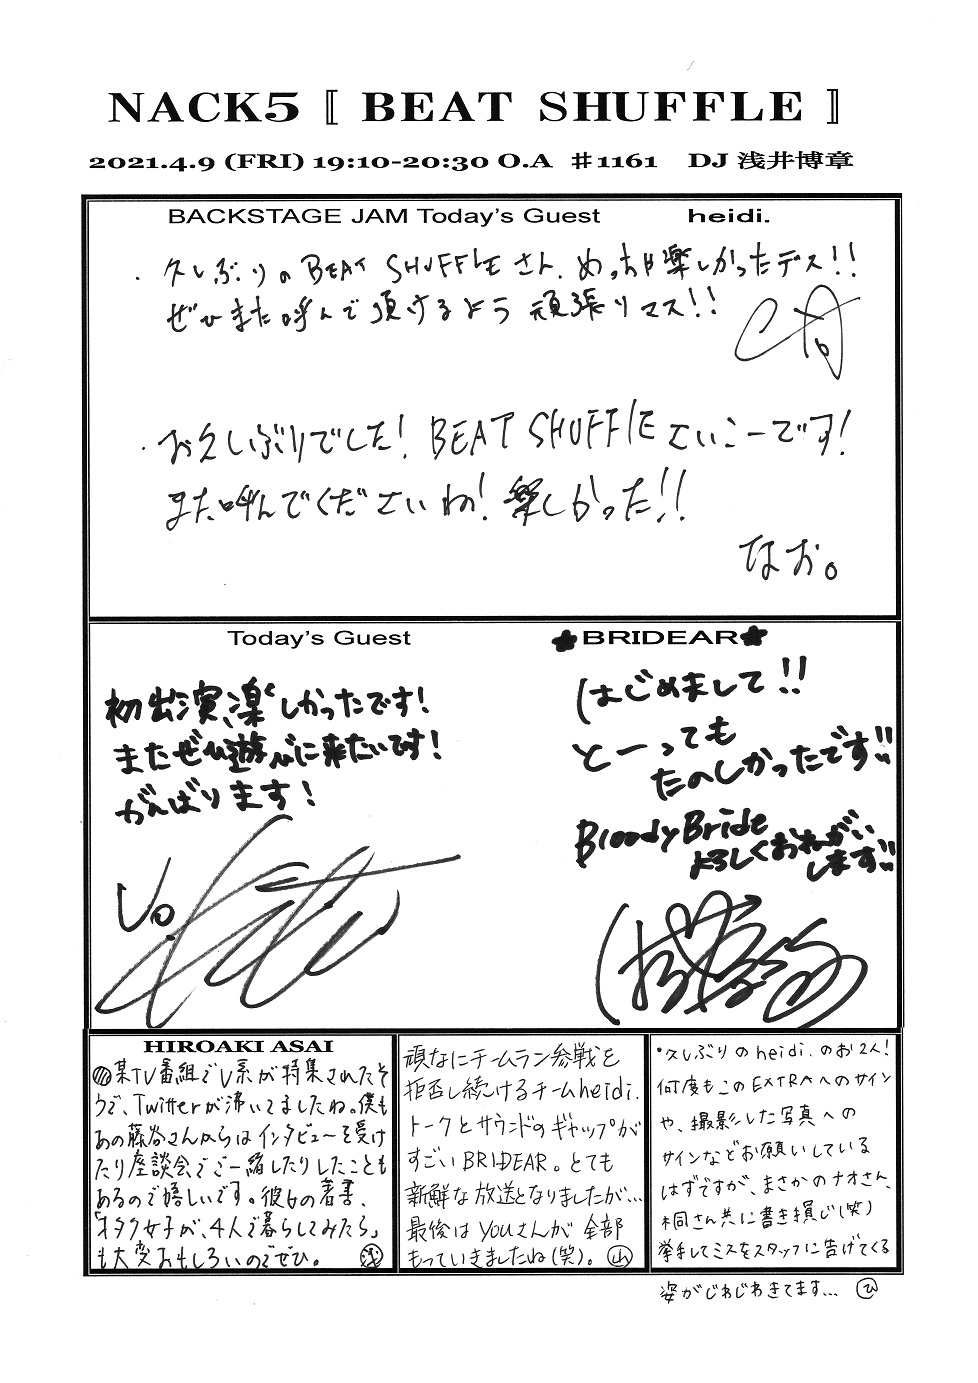 NACK5 〚 BEAT SHUFFLE 〛
2021.4.9 (FRI) 19:10-20:30 O.A ＃1161 DJ 浅井博章
BACKSTAGE JAM Today's Guest heidi.
・久しぶりのBEAT SHUFFLEさん、めっちゃ楽しかったデス!!
ぜひまた呼んで頂けるよう頑張りマス!!
・お久しぶりでした! BEAT SHUFFLEさいこーです!
また呼んでくださいね! 楽しかった!!
なお。
Today's Guest ★BRIDEAR★
初出演、楽しかったです!
またぜひ遊びに来たいです!
がんばります!
Vo.
はじめまして!!
とーっても
たのしかったです!!
Bloody Bride
よろしくおねがい
します!!
HIROAKI ASAI
某TV番組でV系が特集されたそ
うで、Twitterが沸いてましたね。僕も
あの藤谷さんからはインタビューを受け
たり座談会でご一緒したりしたことも
あるので嬉しいです。彼女の著書、
「オタク女子が、4人で暮らしてみたら」
も大変おもしろいのでぜひ。 浅
頑なにチームラン参戦を
拒否し続けるチームheidi.
トークとサウンドのギャップが
すごいBRIDEAR。とても
新鮮な放送となりましたが…
最後はyouさんが全部
もっていきましたね(笑)。 山
・久しぶりのheidi.のお2人!
何度もこのEXTRAへのサイン
や、撮影した写真への
サインなどお願いしている
はずですが、まさかのナオさん、
桐さん共に書き損じ(笑)
挙手してミスをスタッフに告げてくる
姿がじわじわきてます… ひ